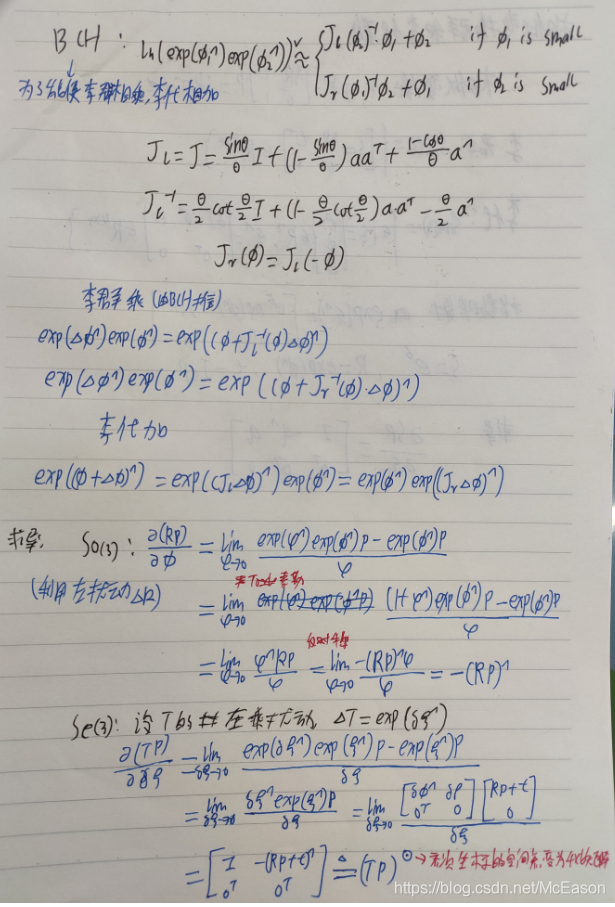 BCH: ln(exp(ϕ₁^)exp(ϕ₂^))^∨ ≈ { J_l(ϕ₂)⁻¹ϕ₁+ϕ₂ if ϕ₁ is small
J_r(ϕ₁)⁻¹ϕ₂+ϕ₁ if ϕ₂ is small
李群相乘,李代相加
J_l=J=sinθ/θ I+(1-sinθ/θ)aaᵀ+(1-cosθ)/θ a^
J_l⁻¹=θ/2 cot θ/2 I+(1-θ/2 cot θ/2)aaᵀ-θ/2 a^
J_r(ϕ)=J_l(-ϕ)
李群乘(由BCH
exp(Δϕ^)exp(ϕ^)=exp((ϕ+J_l⁻¹(ϕ)Δϕ)^)
exp(Δϕ^)exp(ϕ^)=exp((ϕ+J_r⁻¹(ϕ)·Δϕ)^)
李代加
exp((ϕ+Δϕ)^)=exp((J_lΔϕ)^)exp(ϕ^)=exp(ϕ^)exp((J_rΔϕ)^)
求导: SO(3): ∂(RP)/∂ϕ = lim φ→0 (exp(φ^)exp(ϕ^)P-exp(ϕ^)P)/φ
(利用左扰动ΔR)
= lim φ→0 ((1+φ^)exp(ϕ^)P-exp(ϕ^)P)/φ
= lim φ→0 φ^RP/φ = lim φ→0 -(RP)^φ/φ = -(RP)^
Se(3): 设T 左乘扰动 ΔT=exp(δξ^)
∂(TP)/∂δξ = lim δξ→0 (exp(δξ^)exp(ξ^)P-exp(ξ^)P)/δξ
= lim δξ→0 δξ^exp(ξ^)P/δξ = lim δξ→0 [δϕ^ δρ; 0ᵀ 0][RP+t; 0]/δξ
= [I -(RP+t)^; 0ᵀ 0ᵀ] ≜ (TP)^⊙ →
https://blog.csdn.net/McEason